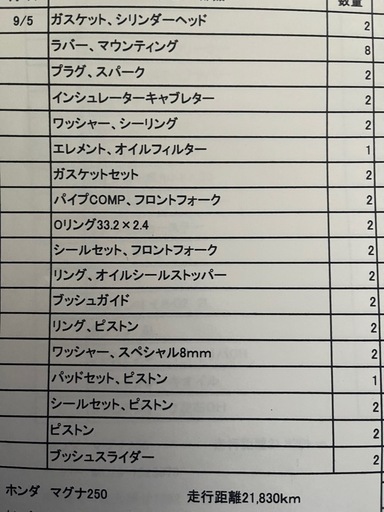 数量
9/5 ガスケット、シリンダーヘッド 2
ラバー、マウンティング 8
プラグ、スパーク 2
インシュレーターキャブレター 2
ワッシャー、シーリング 2
エレメント、オイルフィルター 1
ガスケットセット 2
パイプCOMP、フロントフォーク 2
Oリング33.2×2.4 2
シールセット、フロントフォーク 2
リング、オイルシールストッパー 2
ブッシュガイド 2
リング、ピストン 2
ワッシャー、スペシャル8mm 2
パッドセット、ピストン 1
シールセット、ピストン 2
ピストン 2
ブッシュスライダー 2
ホンダ マグナ250 走行距離21,830km